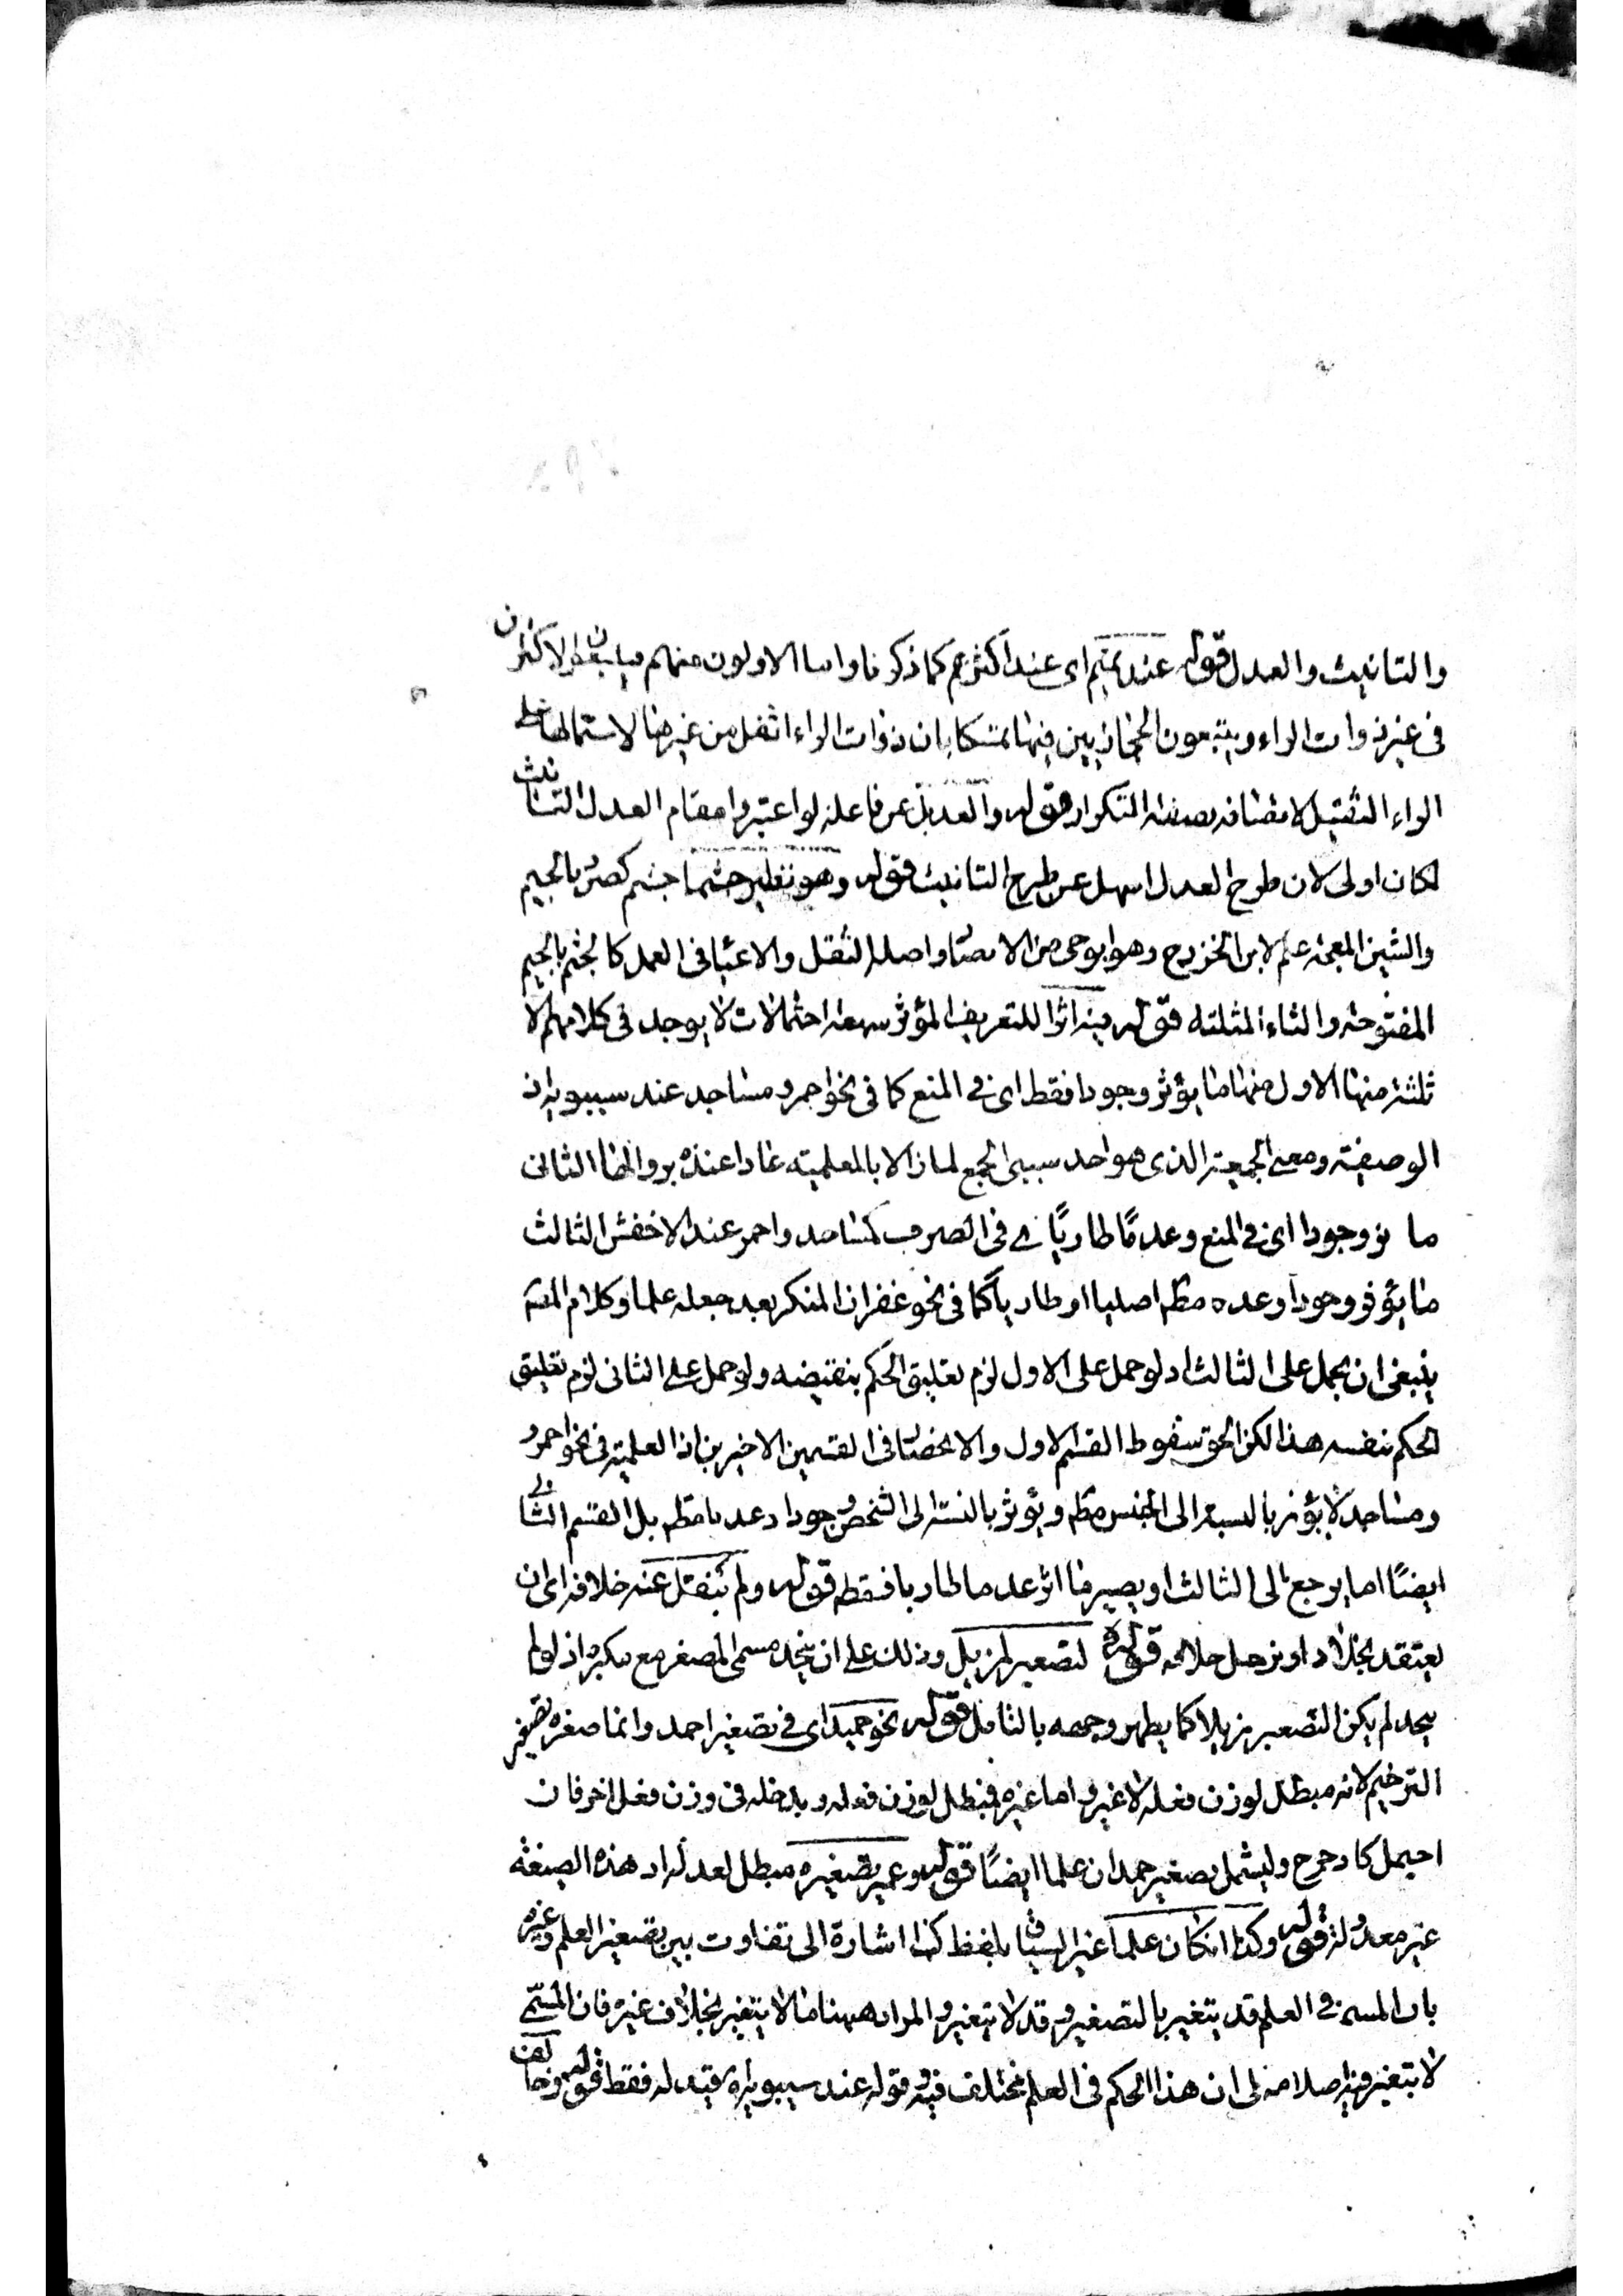 والتانيث والعدل قوله عند تميم اى عند اكثرهم كما ذكرنا واما الاولون منهم فيتابعون الاكثرين
فى غير ذوات الراء ويتبعون الحجازيين فيها متمسكا بان ذوات الراء اثقل من غيرها لاشتمالها على
الراء الثقيل لاتصافه بصفة التكرار قوله والعدل عن فاعلة لو اعتبروا مقام العدل التانيث
لكان اولى لان طرح العدل اسهل عن طرح التانيث قوله وهو نظير جشما جشم كصرد بالجيم
والشين المعجمة علم لابن الخزرج وهو ابو حى من الانصار واصله الثقل والاعياء فى العمد كالجثم بالجيم
المفتوحة والثاء المثلثة قوله فيه اثرا للتعريف المؤثر سبعة احتمالات لا يوجد فى كلامهم الا
ثلثة منها الاول منها ما يؤثر وجودا فقط اى فى المنع كما فى نحو احمر ومساجد عند سيبويه اذ
الوصفية ومعنى الجمعية الذى هو احد سببى الجمع لما زالا بالعلمية عادا عنده بزوالها الثانى
ما وجودا اى فى المنع وعدما طاريا فى الصرف كمساجد واحمر عند الاخفش الثالث
ما يؤثر وجودا وعدما مطلقا اصليا او طاريا كما فى نحو غفران المنكر بعد جعله علما وكلام المصنف
ينبغى ان يحمل على الثالث اذ لو حمل على الاول لزم تعليق الحكم بنقيضه ولو حمل على الثانى لزم تعليق
الحكم بنفسه هذا لكن الحق سقوط القسم الاول والانحصار فى القسمين الاخيرين اذ العلمية فى نحو احمر و
ومساجد لا يؤثر بالنسبة الى الجنس مطلقا ويؤثر بالنسبة الى الشخص وجودا وعدما مطلقا بل القسم الثانى
ايضا اما يرجع الى الثالث او يصير ما اثر عدما طاريا فقط قوله ولم ينقل عنه خلافه اى ان
يعتقد بخلاد او نزحل حلالمه قوله لتصغير المزيل وذلك على ان يتحد مسمى المصغر مع مكبره اذ لو لم
يتحد لم يكن التصغير مزيلا كما يظهر وجهه بالتامل قوله نحو حميد اى فى تصغير احمد وانما صغره تصغير
الترخيم لانه مبطل لوزن فعله لا غير واما غيره فيبطل لوزن فعله ويدخله فى وزن فعل اخر فان
احيمل كادحرج وليشمل تصغير حمدان علما ايضا قوله وعمير تصغيره مبطل لعدله اذ هذه الصيغة
غير معدولة قوله وكذا ان كان علما غير السياق بلفظ كذا اشارة الى تفاوت بين تصغير العلم وغيره
بان المسمى فى العلم قد يتغير بالتصغير وقد لا يتغير والمراد ههنا ما لا يتغير بخلاف غيره فان المسمى
لا يتغير فيه اصلا مه لى ان هذا الحكم فى العلم مختلف فيه وقوله عند سيبويه قيد له فقط قوله وخالف